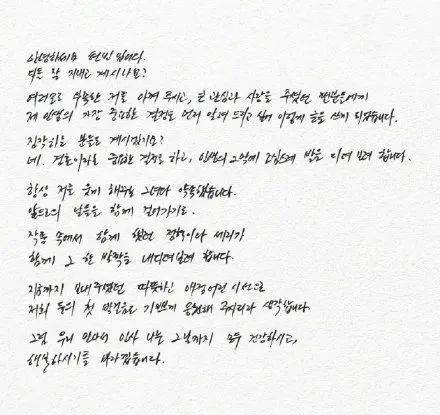 안녕하세요 현빈 입니다.
다들 잘 지내고 계시나요?
여러모로 부족한 저를 아껴 주시고, 큰 관심과 사랑을 주셨던 팬분들에게
제 인생의 가장 중요한 결정도 먼저 알려 드리고 싶어 이렇게 글을 쓰게 되었습니다.
짐작하고 분들도 계시겠지요?
네. 결혼이라는 중요한 결정을 하고, 인생의 2막에 조심스레 발을 디뎌 보려 합니다.
항상 저를 웃게 해주는 그녀와 약속했습니다.
앞으로의 날들을 함께 걸어가기로.
작품 속에서 함께 했던 정혁이와 세리가
함께 그 한 발짝을 내디뎌보려 합니다.
지금까지 보내주셨던 따뜻하신 애정어린 시선으로
저희 둘의 첫 발걸음을 기쁘게 응원해 주시리라 생각합니다.
그럼 우리 만나서 인사 나눌 그날까지 모두 건강하시고,
행복하시기를 바라겠습니다.